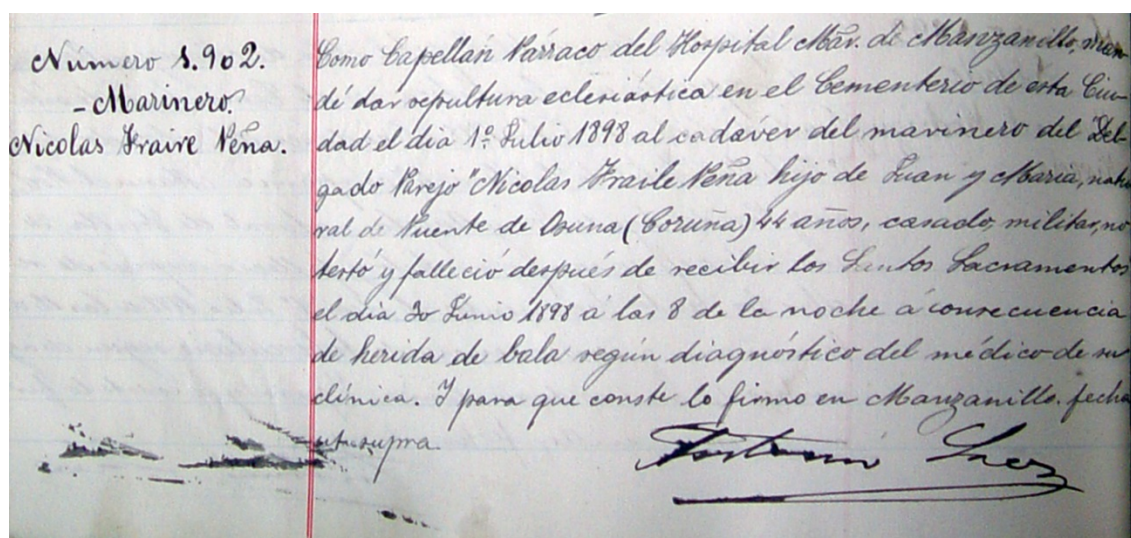 Número 1.902.
- Marinero.
Nicolas Fraire Peña.
Como Capellán Párraco del Hospital Mar. de Manzanillo, man-
dé dar sepultura eclesiástica en el Cementerio de esta Ciu-
dad el dia 1º Julio 1898 al cadáver del marinero del "Del-
gado Parejo" Nicolas Fraile Peña hijo de Juan y Maria, natu-
ral de Puente de Osuna (Coruña) 44 años, casado, militar, no
testó y falleció después de recibir los Santos Sacramentos
el dia 30 Junio 1898 a las 8 de la noche á consecuencia
de herida de bala según diagnóstico del médico de su
clínica. Y para que conste lo firmo en Manzanillo. fecha
ut supra.